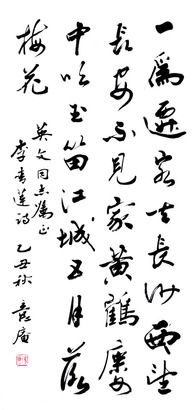 一爲遷客去長沙西望
長安不見家黃鶴樓
中吹玉笛江城五月落
梅花
英文同志屬正
李青蓮詩乙丑秋